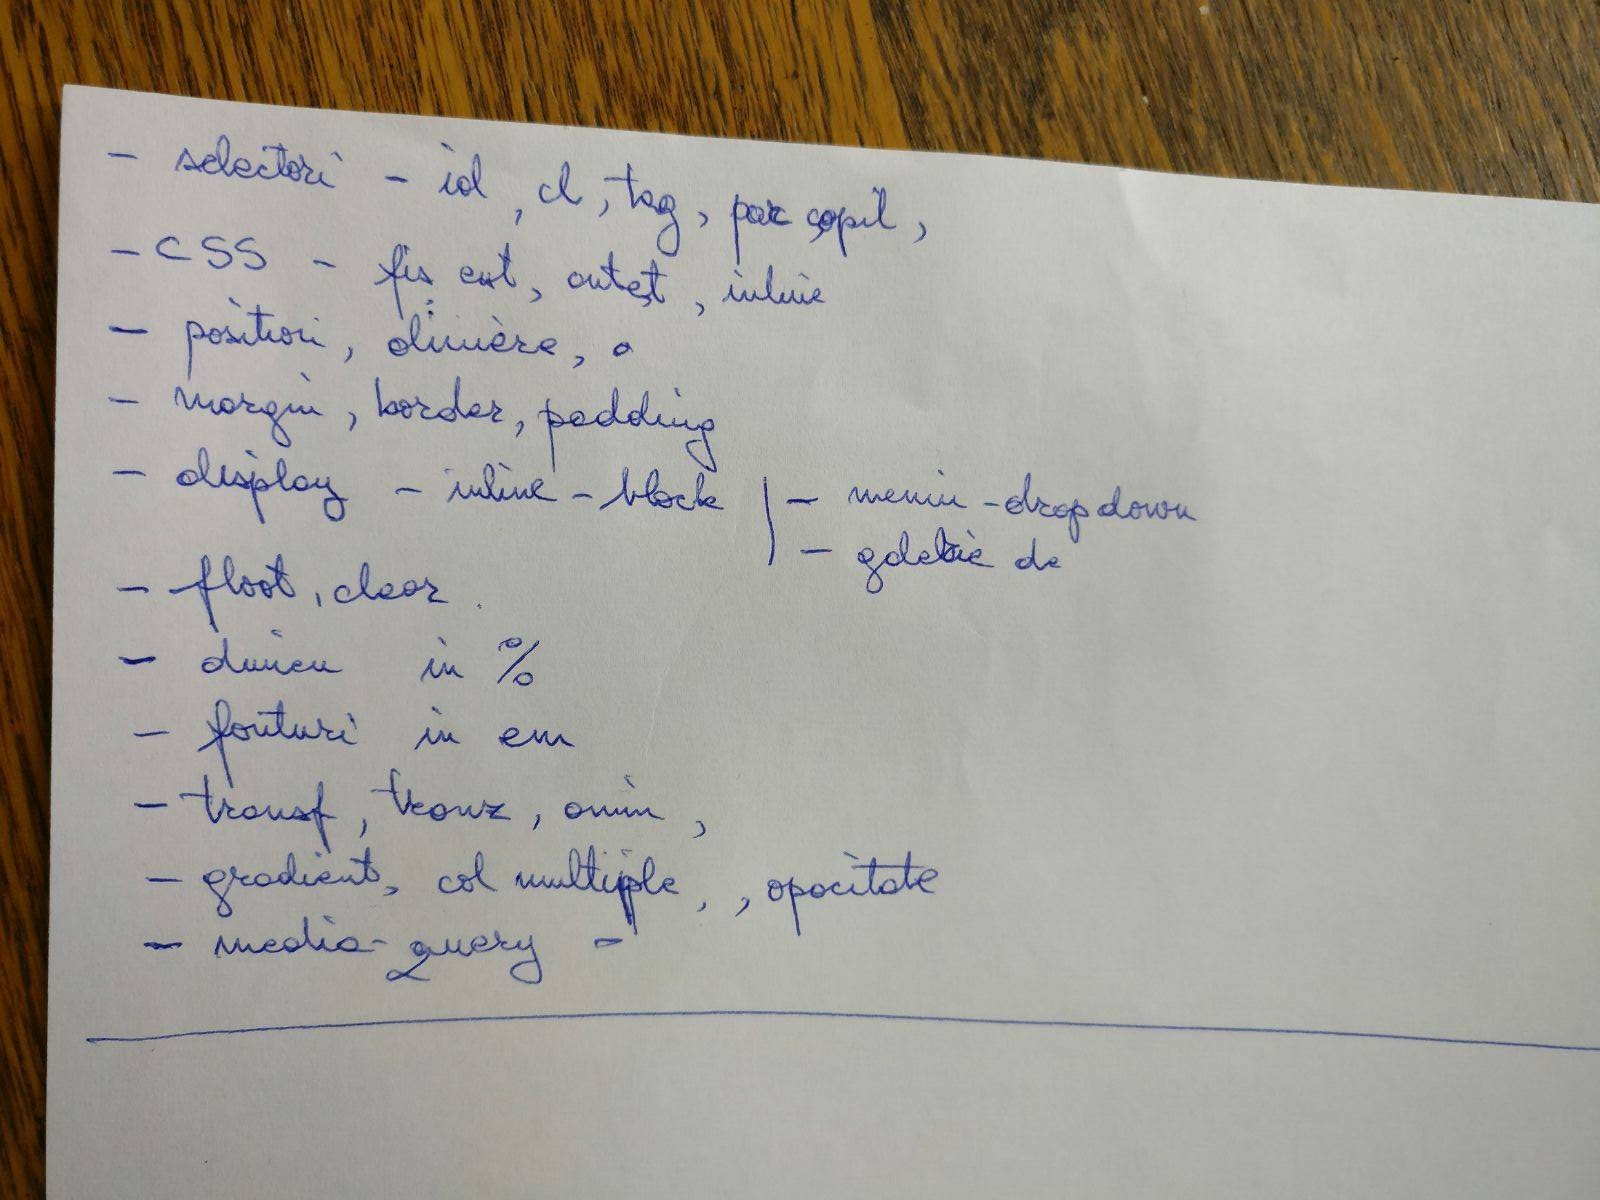 - selectori - id, cl, tag, par copil,
- CSS - fis ext, antet, inline
- pozition,
- margin, border, padding
- display - inline-block | - meniu-dropdown
- galerie de
- float, clear.
- in %
- fonturi in em
- transf, tranz, anim,
- gradient, col multiple, , opacitate
- media-query -